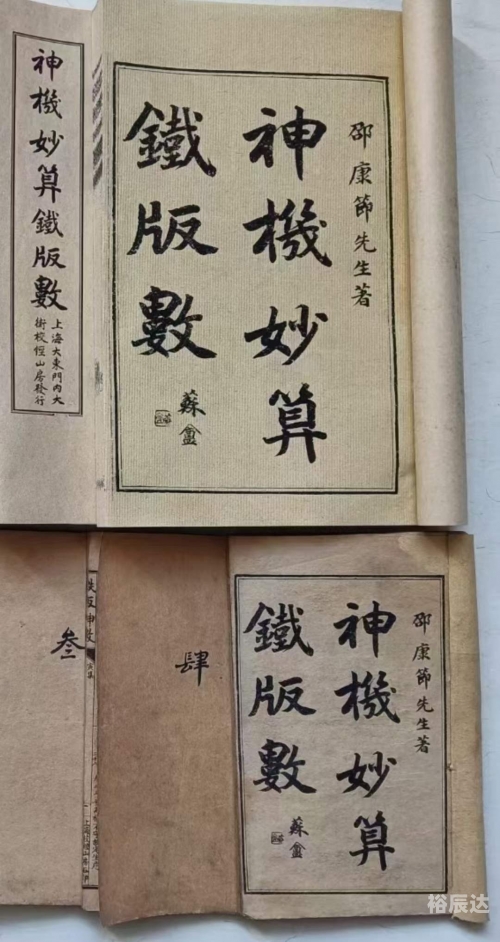 邵康節先生著
神機妙算
鐵版數
蘇盦
神機妙算鐵版數
上海大東門內大
街校經山房發行
邵康節先生著
神機妙算
鐵版數
蘇盦
肆
叁
裕辰达